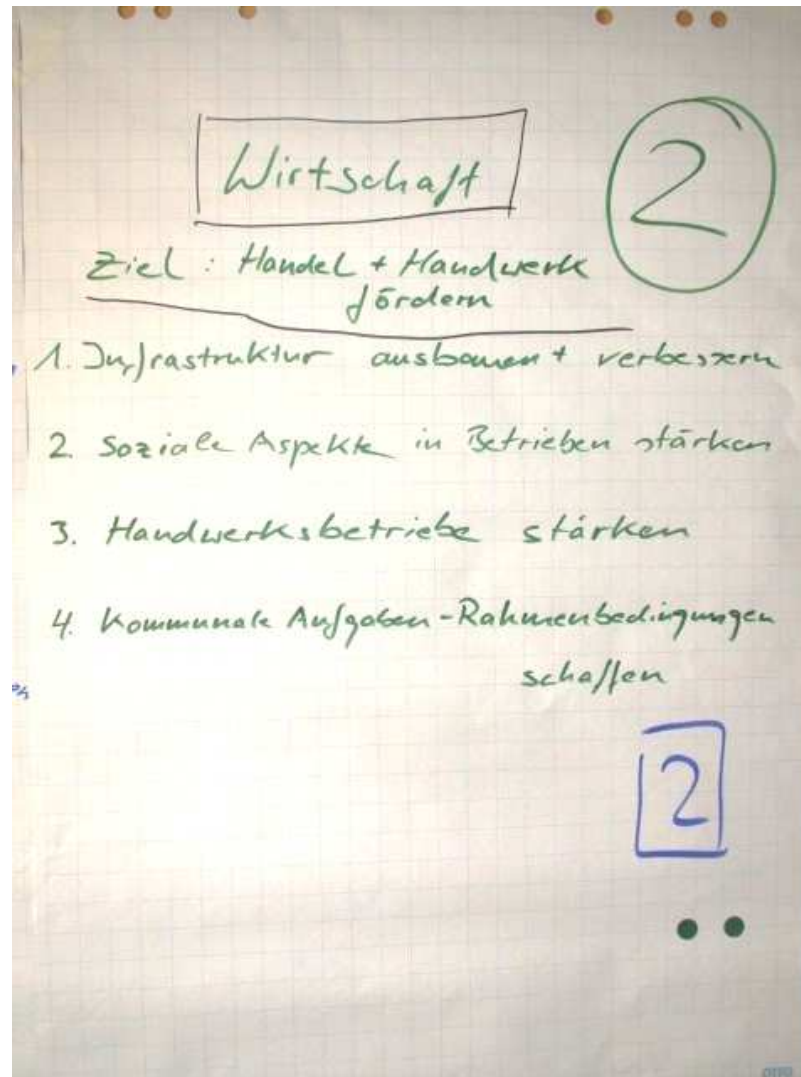 Wirtschaft
2
Ziel: Handel + Handwerk
fördern
1. Infrastruktur ausbauen + verbessern
2. Soziale Aspekte in Betrieben stärken
3. Handwerksbetriebe stärken
4. Kommunale Aufgaben - Rahmenbedingungen
schaffen
2